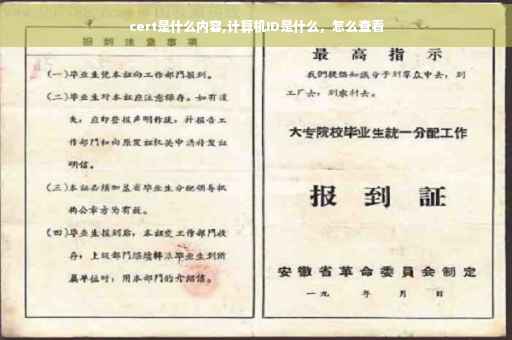 cert是什么内容,计算机ID是什么，怎么查看
报到注意事项
(一)毕业生凭本证向工作部门报到。
(二)毕业生对本证应注意保存。如有遗
失，应即登报声明作废，并报告工
作部门和向原发证机关申请补发证
明信。
(三)本证必须加盖省毕业生分配领导机
构公章方为有效。
(四)毕业生报到后，本证交工作部门收
存；上级部门
毕业生到所
属单位时，用本部门的介绍信。
最高指示
我们提倡知识分子到群众中去，到
工厂去，到农村去。
大专院校毕业生統一分配工作
报到証
安徽省革命委員会制定
一九 年 月 日